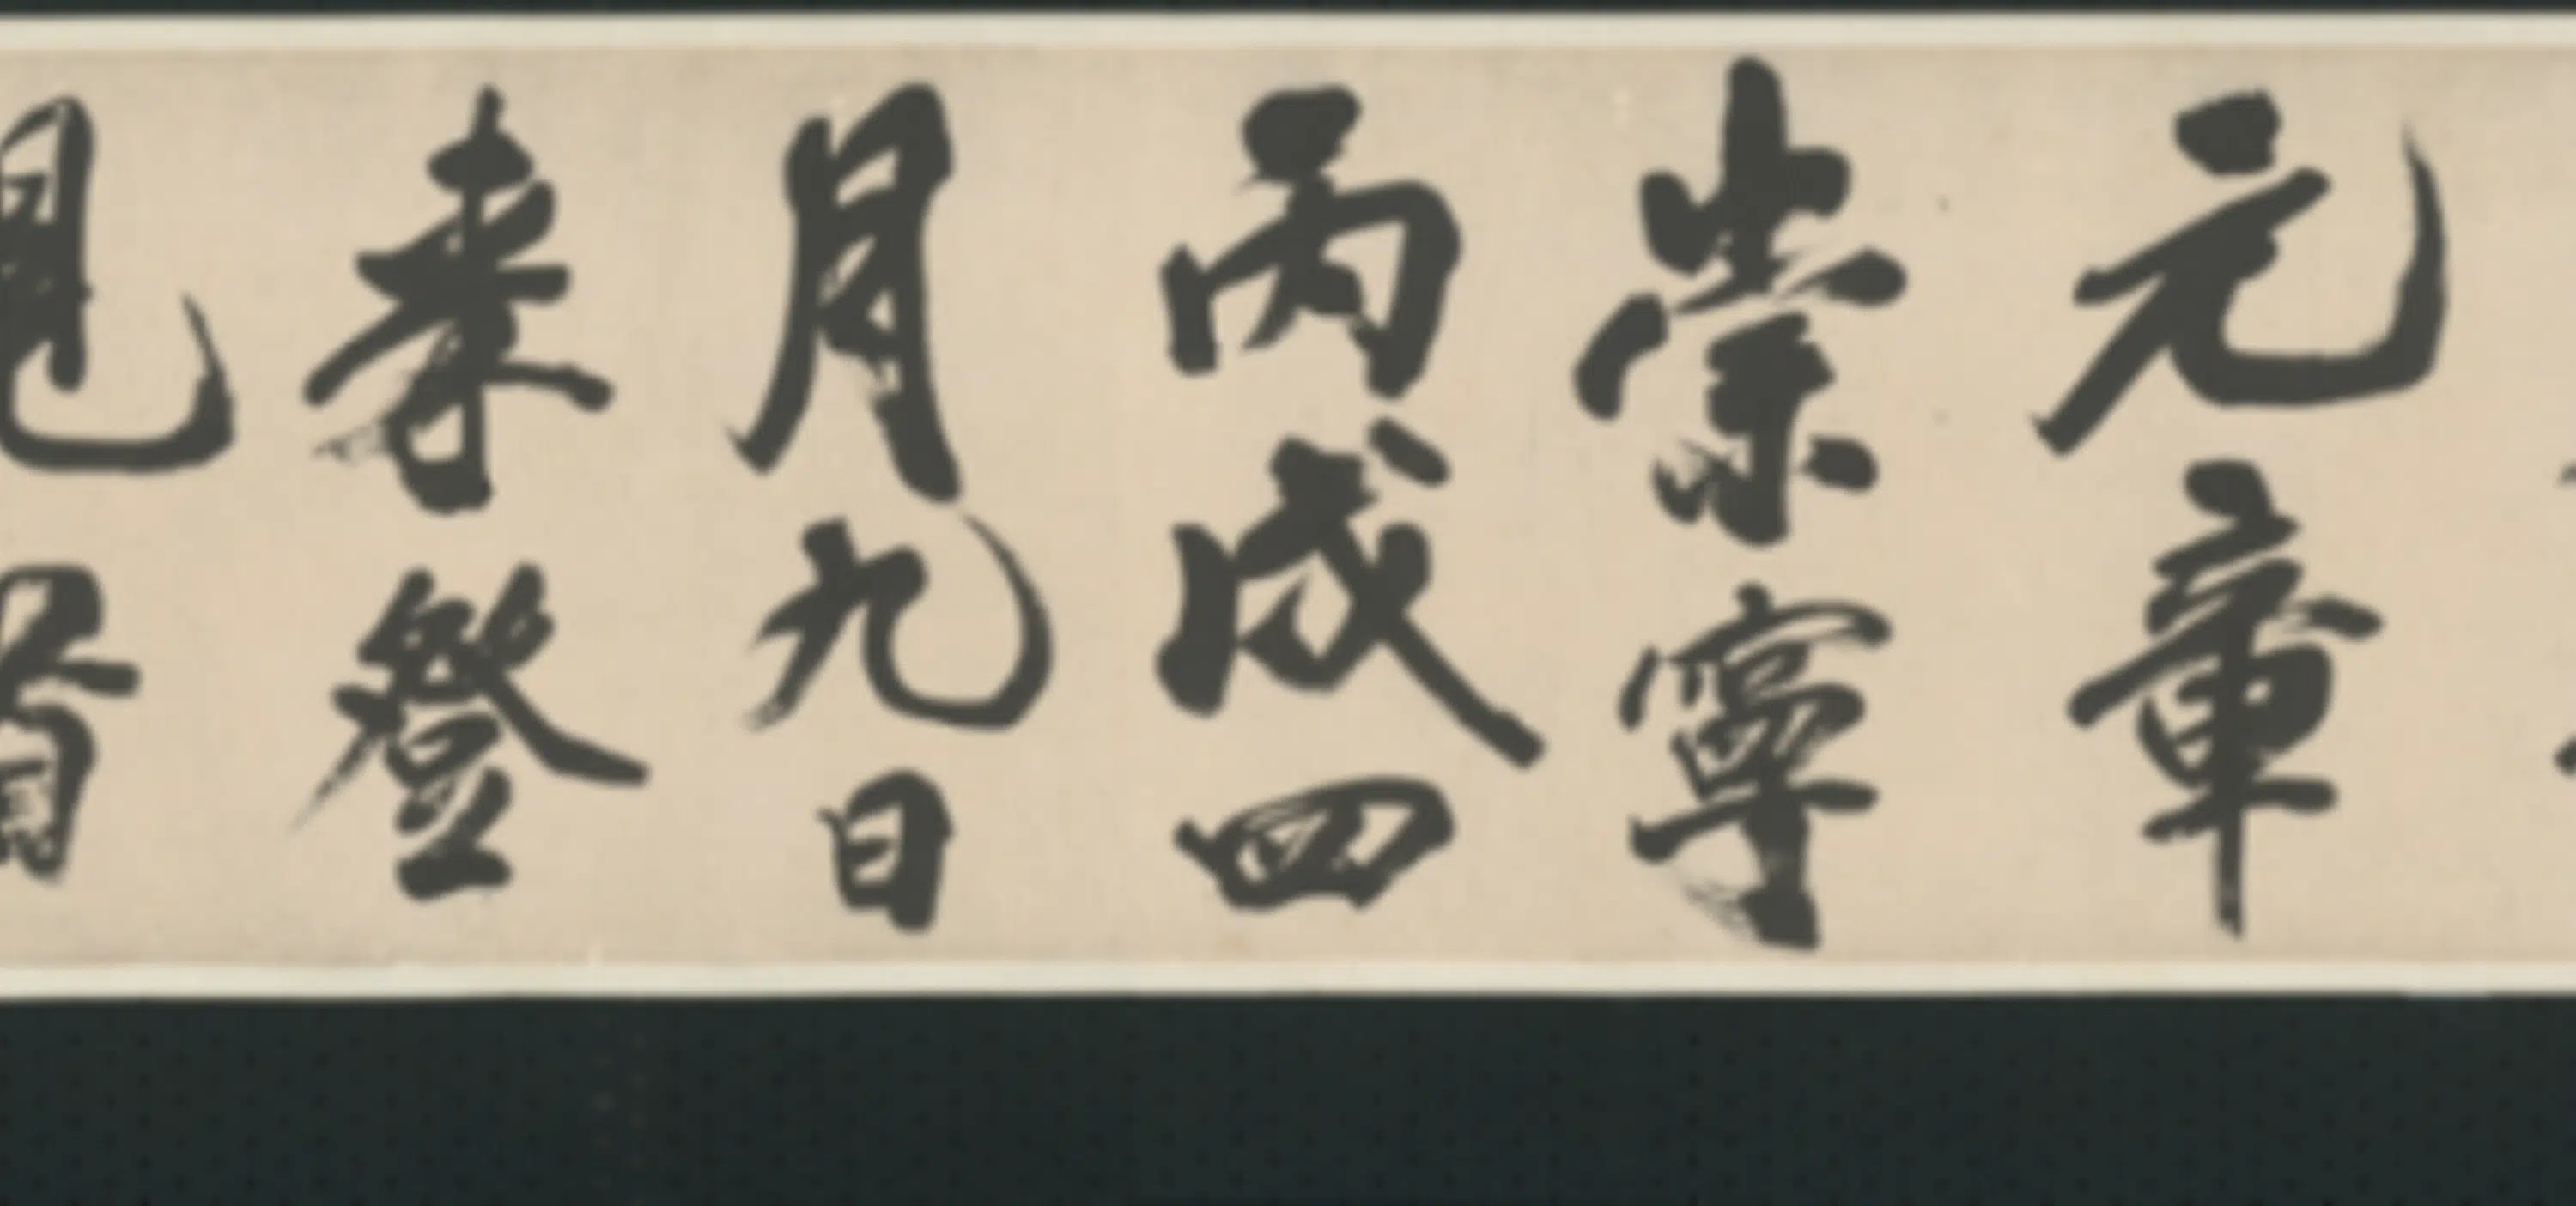 元章
崇寧
丙戌四
月九日
来登